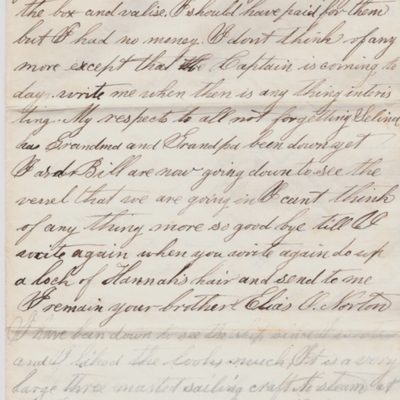 the box and valise. I should have paid for them
but I had no money. I dont think of any
more except that the Captain is coming to
day. write me when there is any thing intris
ting. My respects to all not forgetting Selina
has Grandma and Grandpa been down yet
I and Bill are now going down to see the
vessel that we are going in I cant think
of any thing more so good bye till I
write again when you write again do up
a loch of Hannahs hair and send to me
I remain your brother Elias A. Norton
I have ban down to see the
and I liked the looks much, It is a very
large three masted sailing craft